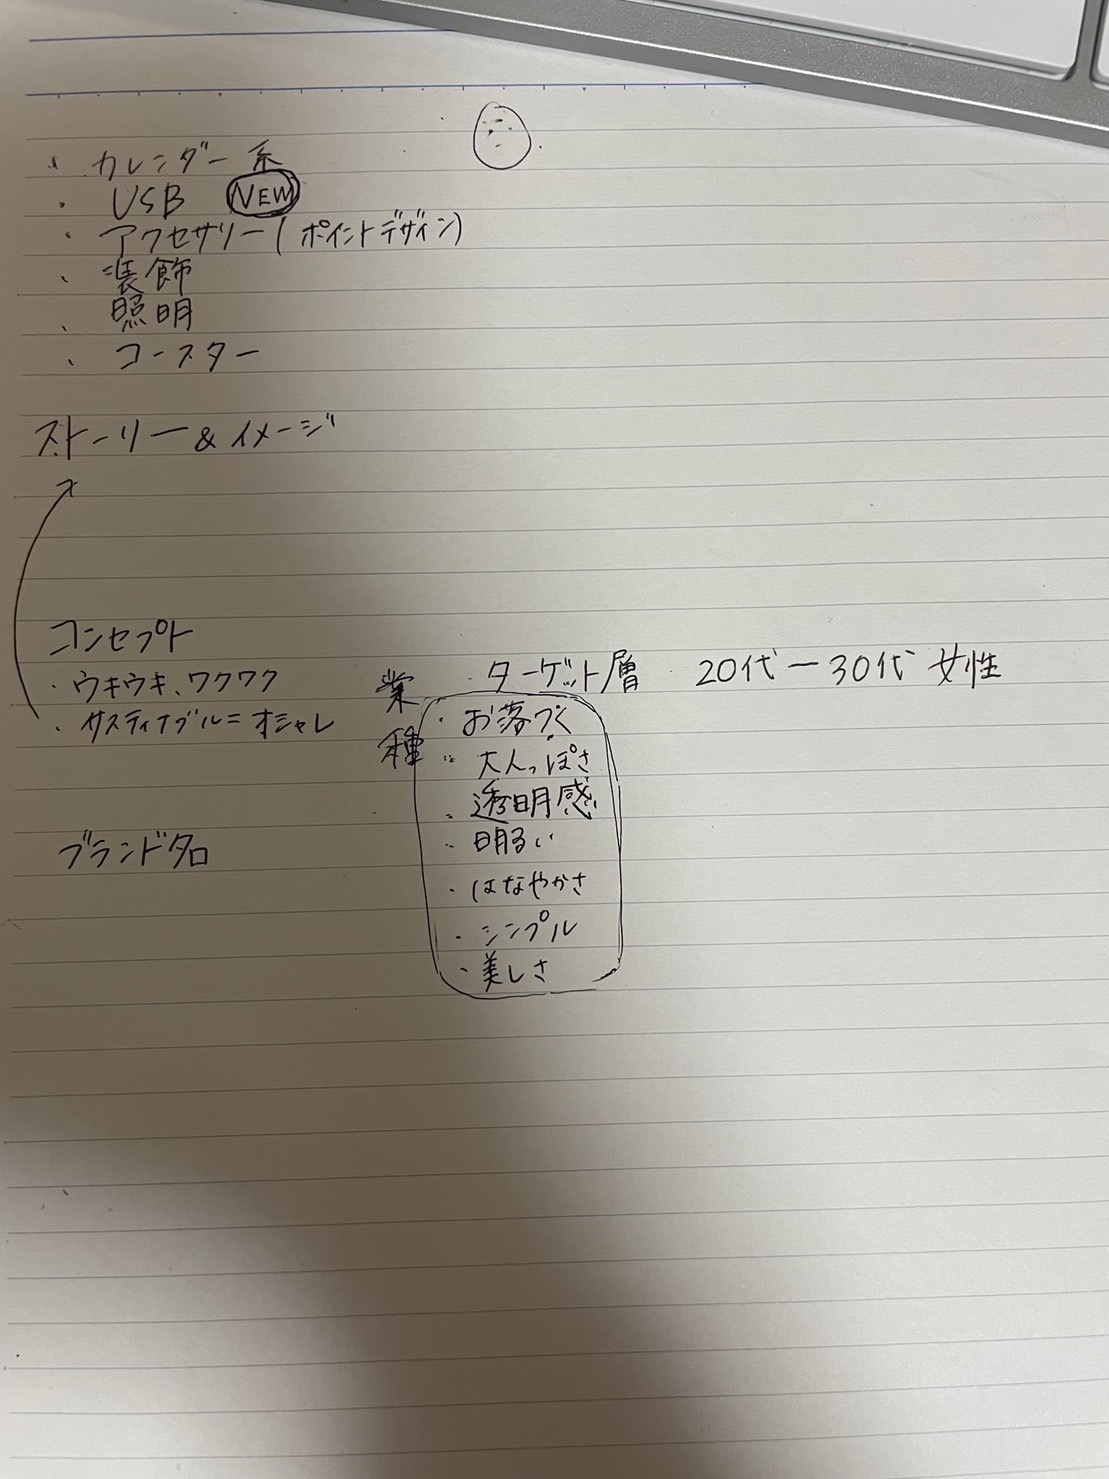 ・カレンダー系
・USB NEW
・アクセサリー(ポイントデザイン)
・装飾
・照明
・コースター
ストーリー&イメージ
コンセプト
・ウキウキ、ワクワク
・サスティナブル=オシャレ
ブランド名
業種
ターゲット層 20代ー30代 女性
・お落づく
・大人っぽさ
・透明感
・明るい
・はなやかさ
・シンプル
・美しさ